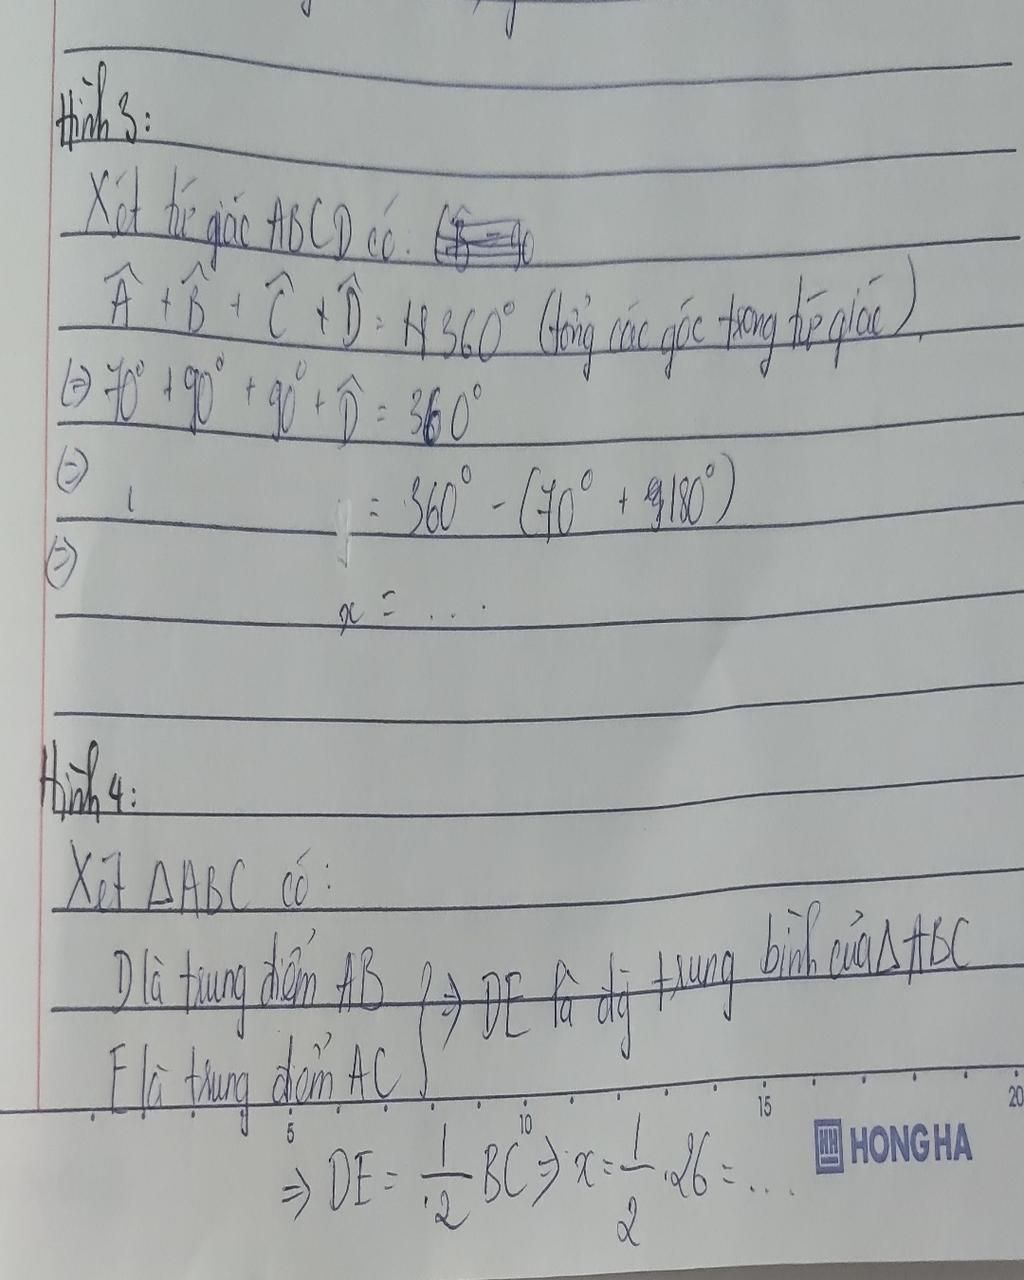 Hình 3:
Xét tứ giác ABCD có:
Â + B̂ + Ĉ + D̂ = 360° (tổng các góc trong tứ giác)
(=) 70° + 90° + 90° + D̂ = 360°
(=) = 360° - (70° + 180°)
(=)
x = ...
Hình 4:
Xét ΔABC có:
D là trung điểm AB
E là trung điểm AC } => DE là đg trung bình của ΔABC
5 10 15 20
HONG HA
=> DE = 1/2 BC => x = 1/2 . 26 = ...